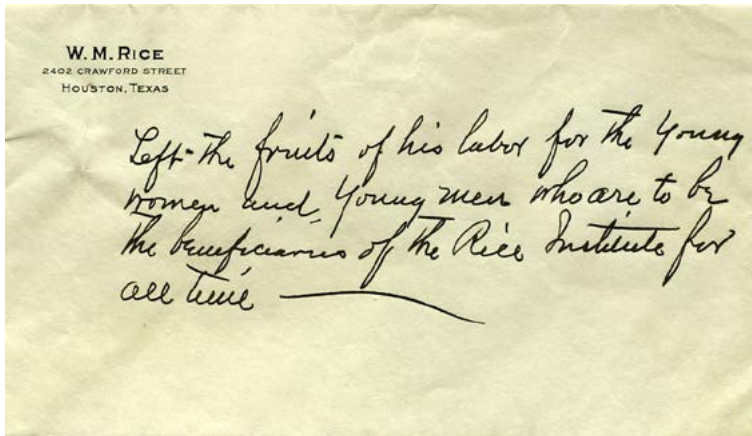 W. M. RICE
2402 CRAWFORD STREET
HOUSTON, TEXAS
Left the fruits of his labor for the Young
women and Young men who are to be
the beneficiaries of the Rice Institute for
all time